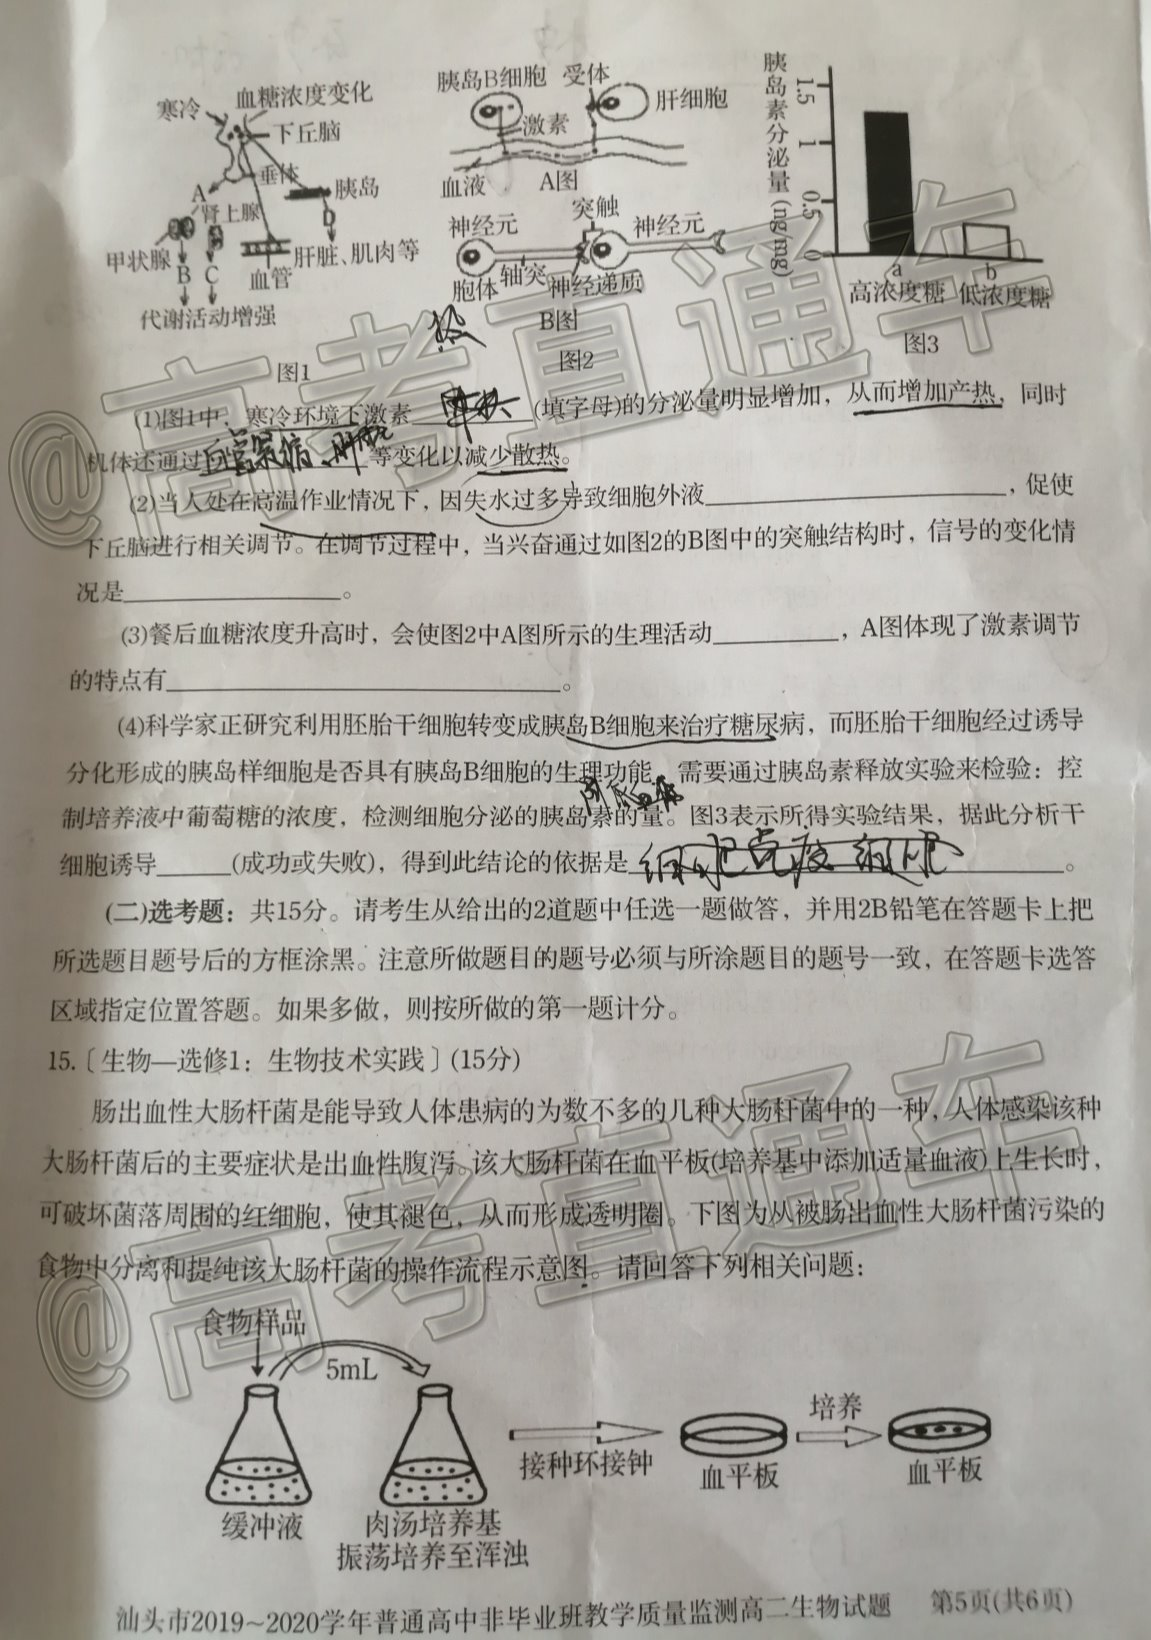 寒冷
血糖浓度变化
下丘脑
垂体
A
胰岛
肾上腺
D
甲状腺
B
C
血管
肝脏、肌肉等
代谢活动增强
图1
胰岛B细胞
受体
肝细胞
激素
血液
A图
神经元
突触
神经元
胞体
轴突
神经递质
B图
图2
胰岛素分泌量(ng/mg)
1.5
1
0.5
0
a
b
高浓度糖
低浓度糖
图3
(1)图1中，寒冷环境下激素 甲状 (填字母)的分泌量明显增加，从而增加产热，同时
机体还通过 等变化以减少散热。
(2)当人处在高温作业情况下，因失水过多导致细胞外液____，促使
下丘脑进行相关调节。在调节过程中，当兴奋通过如图2的B图中的突触结构时，信号的变化情
况是____。
(3)餐后血糖浓度升高时，会使图2中A图所示的生理活动____，A图体现了激素调节
的特点有____。
(4)科学家正研究利用胚胎干细胞转变成胰岛B细胞来治疗糖尿病，而胚胎干细胞经过诱导
分化形成的胰岛样细胞是否具有胰岛B细胞的生理功能，需要通过胰岛素释放实验来检验：控
制培养液中葡萄糖的浓度，检测细胞分泌的胰岛素的量。图3表示所得实验结果，据此分析干
细胞诱导____(成功或失败)，得到此结论的依据是 细胞免疫 细胞 。
(二)选考题：共15分。请考生从给出的2道题中任选一题做答，并用2B铅笔在答题卡上把
所选题目题号后的方框涂黑。注意所做题目的题号必须与所涂题目的题号一致，在答题卡选答
区域指定位置答题。如果多做，则按所做的第一题计分。
15.〔生物—选修1：生物技术实践〕(15分)
肠出血性大肠杆菌是能导致人体患病的为数不多的几种大肠杆菌中的一种，人体感染该种
大肠杆菌后的主要症状是出血性腹泻。该大肠杆菌在血平板(培养基中添加适量血液)上生长时，
可破坏菌落周围的红细胞，使其褪色，从而形成透明圈。下图为从被肠出血性大肠杆菌污染的
食物中分离和提纯该大肠杆菌的操作流程示意图。请回答下列相关问题：
食物样品
5mL
培养
接种环接钟
血平板
血平板
缓冲液
肉汤培养基
振荡培养至浑浊
汕头市2019~2020学年普通高中非毕业班教学质量监测高二生物试题 第5页(共6页)
@高考直通车
@高考直通车